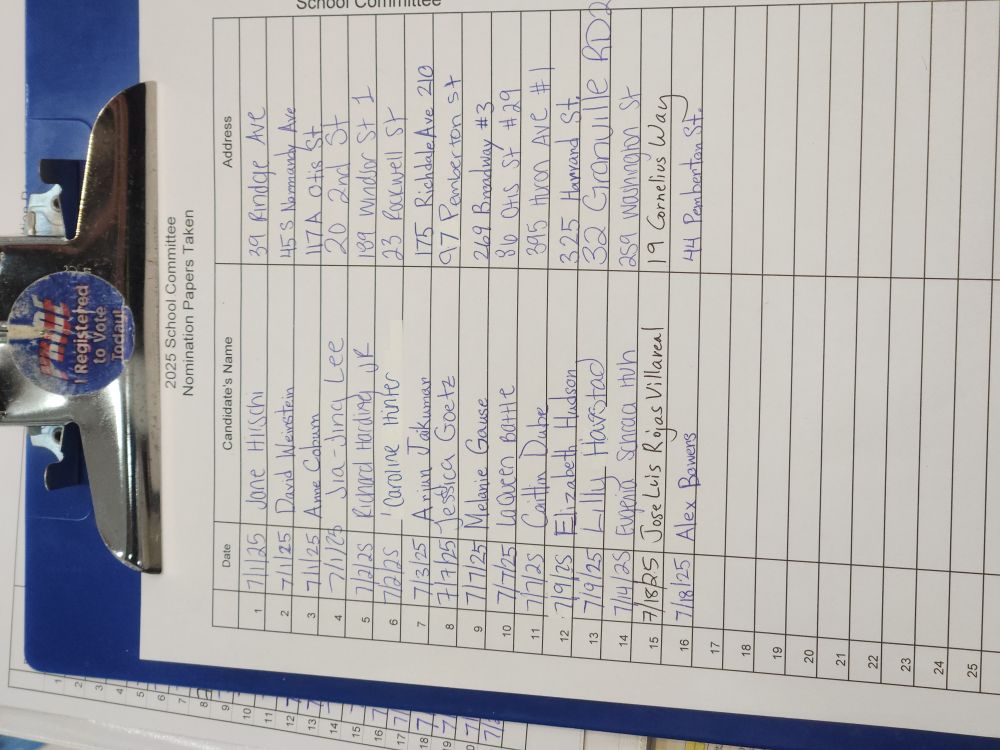 School Committee
2025 School Committee
Nomination Papers Taken
I Registered
to Vote
Today!
Date Candidate's Name Address
1 7/1/25 Jane Hirschi 39 Rindge Ave
2 7/1/25 David Weinstein 45 S Normandy Ave
3 7/1/25 Anne Coburn 117A Otis St
4 7/1/25 Jia-Jing Lee 20 2nd St
5 7/2/25 Richard Harding JR 189 Windsor St 1
6 7/2/25 Caroline Hunter 23 Rockwell St
7 7/3/25 Arjun Jaikumar 175 Richdale Ave 210
8 7/7/25 Jessica Goetz 97 Pemberton St
9 7/7/25 Melanie Gause 269 Broadway #3
10 7/7/25 LaQueen Battle 86 Otis St #29
11 7/7/25 Caitlin Dube 395 Huron Ave #1
12 7/9/25 Elizabeth Hudson 325 Harvard St.
13 7/9/25 Lilly Havstad 32 Granville RD2
14 7/14/25 Eugenia Schraa Huh 259 Washington St
15 7/18/25 Jose Luis Rojas Villareal 19 Cornelius Way
16 7/18/25 Alex Bowers 44 Pemberton St.
17
18
19
20
21
22
23
24
25